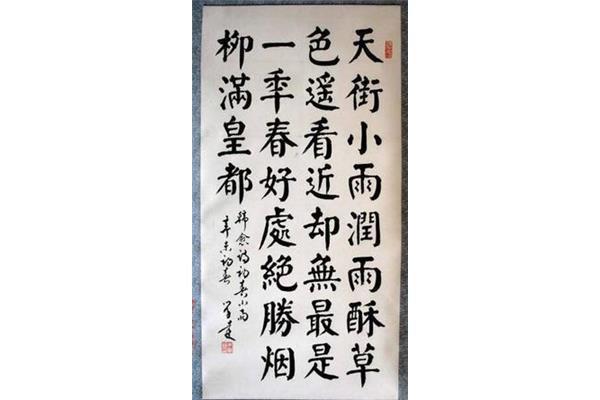 天街小雨潤雨酥草
色遥看近却無最是
一秊春好處絶勝烟
柳滿皇都
韓愈詩初春小雨
辛未初春